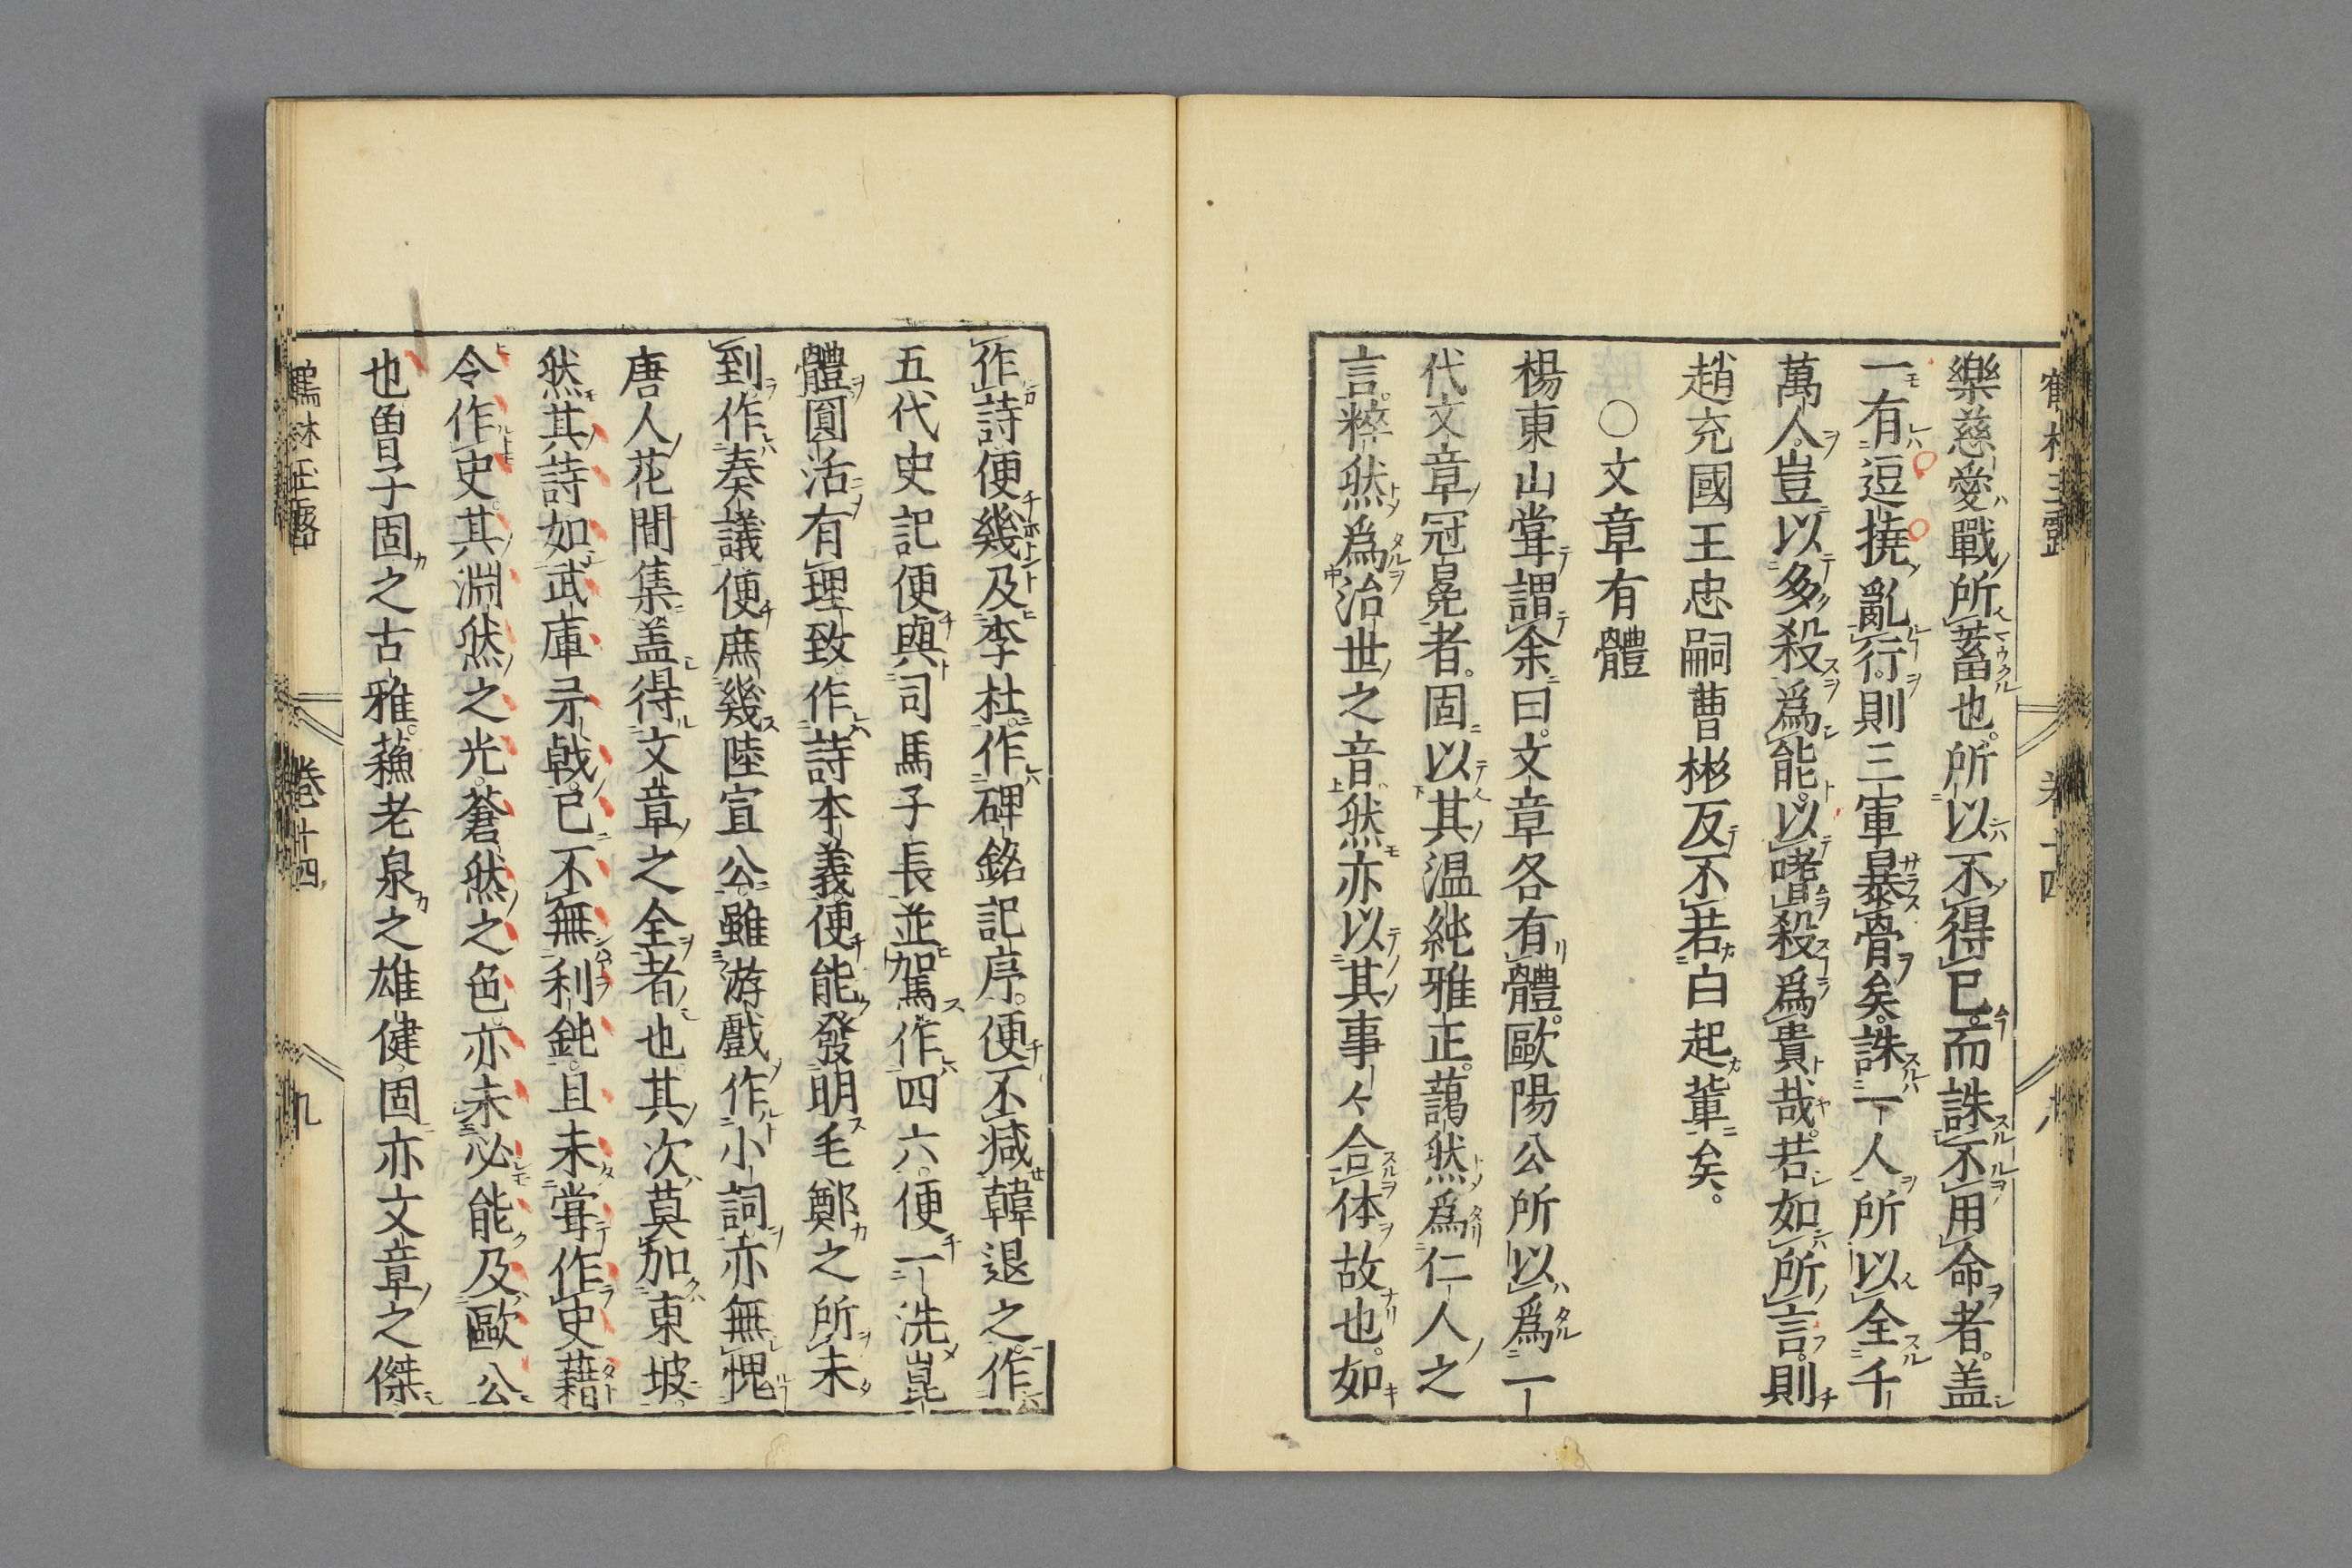 鶴林玉露 卷十四 八
樂慈愛戰所蓄也。所以不得已。而誅不用命者。盖
一有逗撓亂行。則三軍暴骨矣。誅一人所以全千
萬人。豈以多殺爲能。以嗜殺爲貴哉。若如所言。則
趙充國王忠嗣曹彬反不若白起輩矣。
○文章有體
楊東山甞謂余曰。文章各有體。歐陽公所以爲一
代文章冠冕者。固以其温純雅正。藹然爲仁人之
言。粹然爲治世之音。然亦以其事々合体故也。如
作詩便幾及李杜。作碑銘記序。便不减韓退之。作
五代史記便與司馬子長並駕。作四六。便一洗崑
體。圓活有理致。作詩本義。便能發明毛鄭之所未
到。作奏議便庶幾陸宣公。雖游戲作小詞。亦無愧
唐人花間集。盖得文章之全者也。其次莫加東坡。
然其詩如武庫矛戟。已不無利鈍。且未甞作史。藉
令作史。其淵然之光。蒼然之色。亦未必能及歐公
也。曽子固之古雅。蘓老泉之雄健。固亦文章之傑
鶴林玉露 卷十四 九